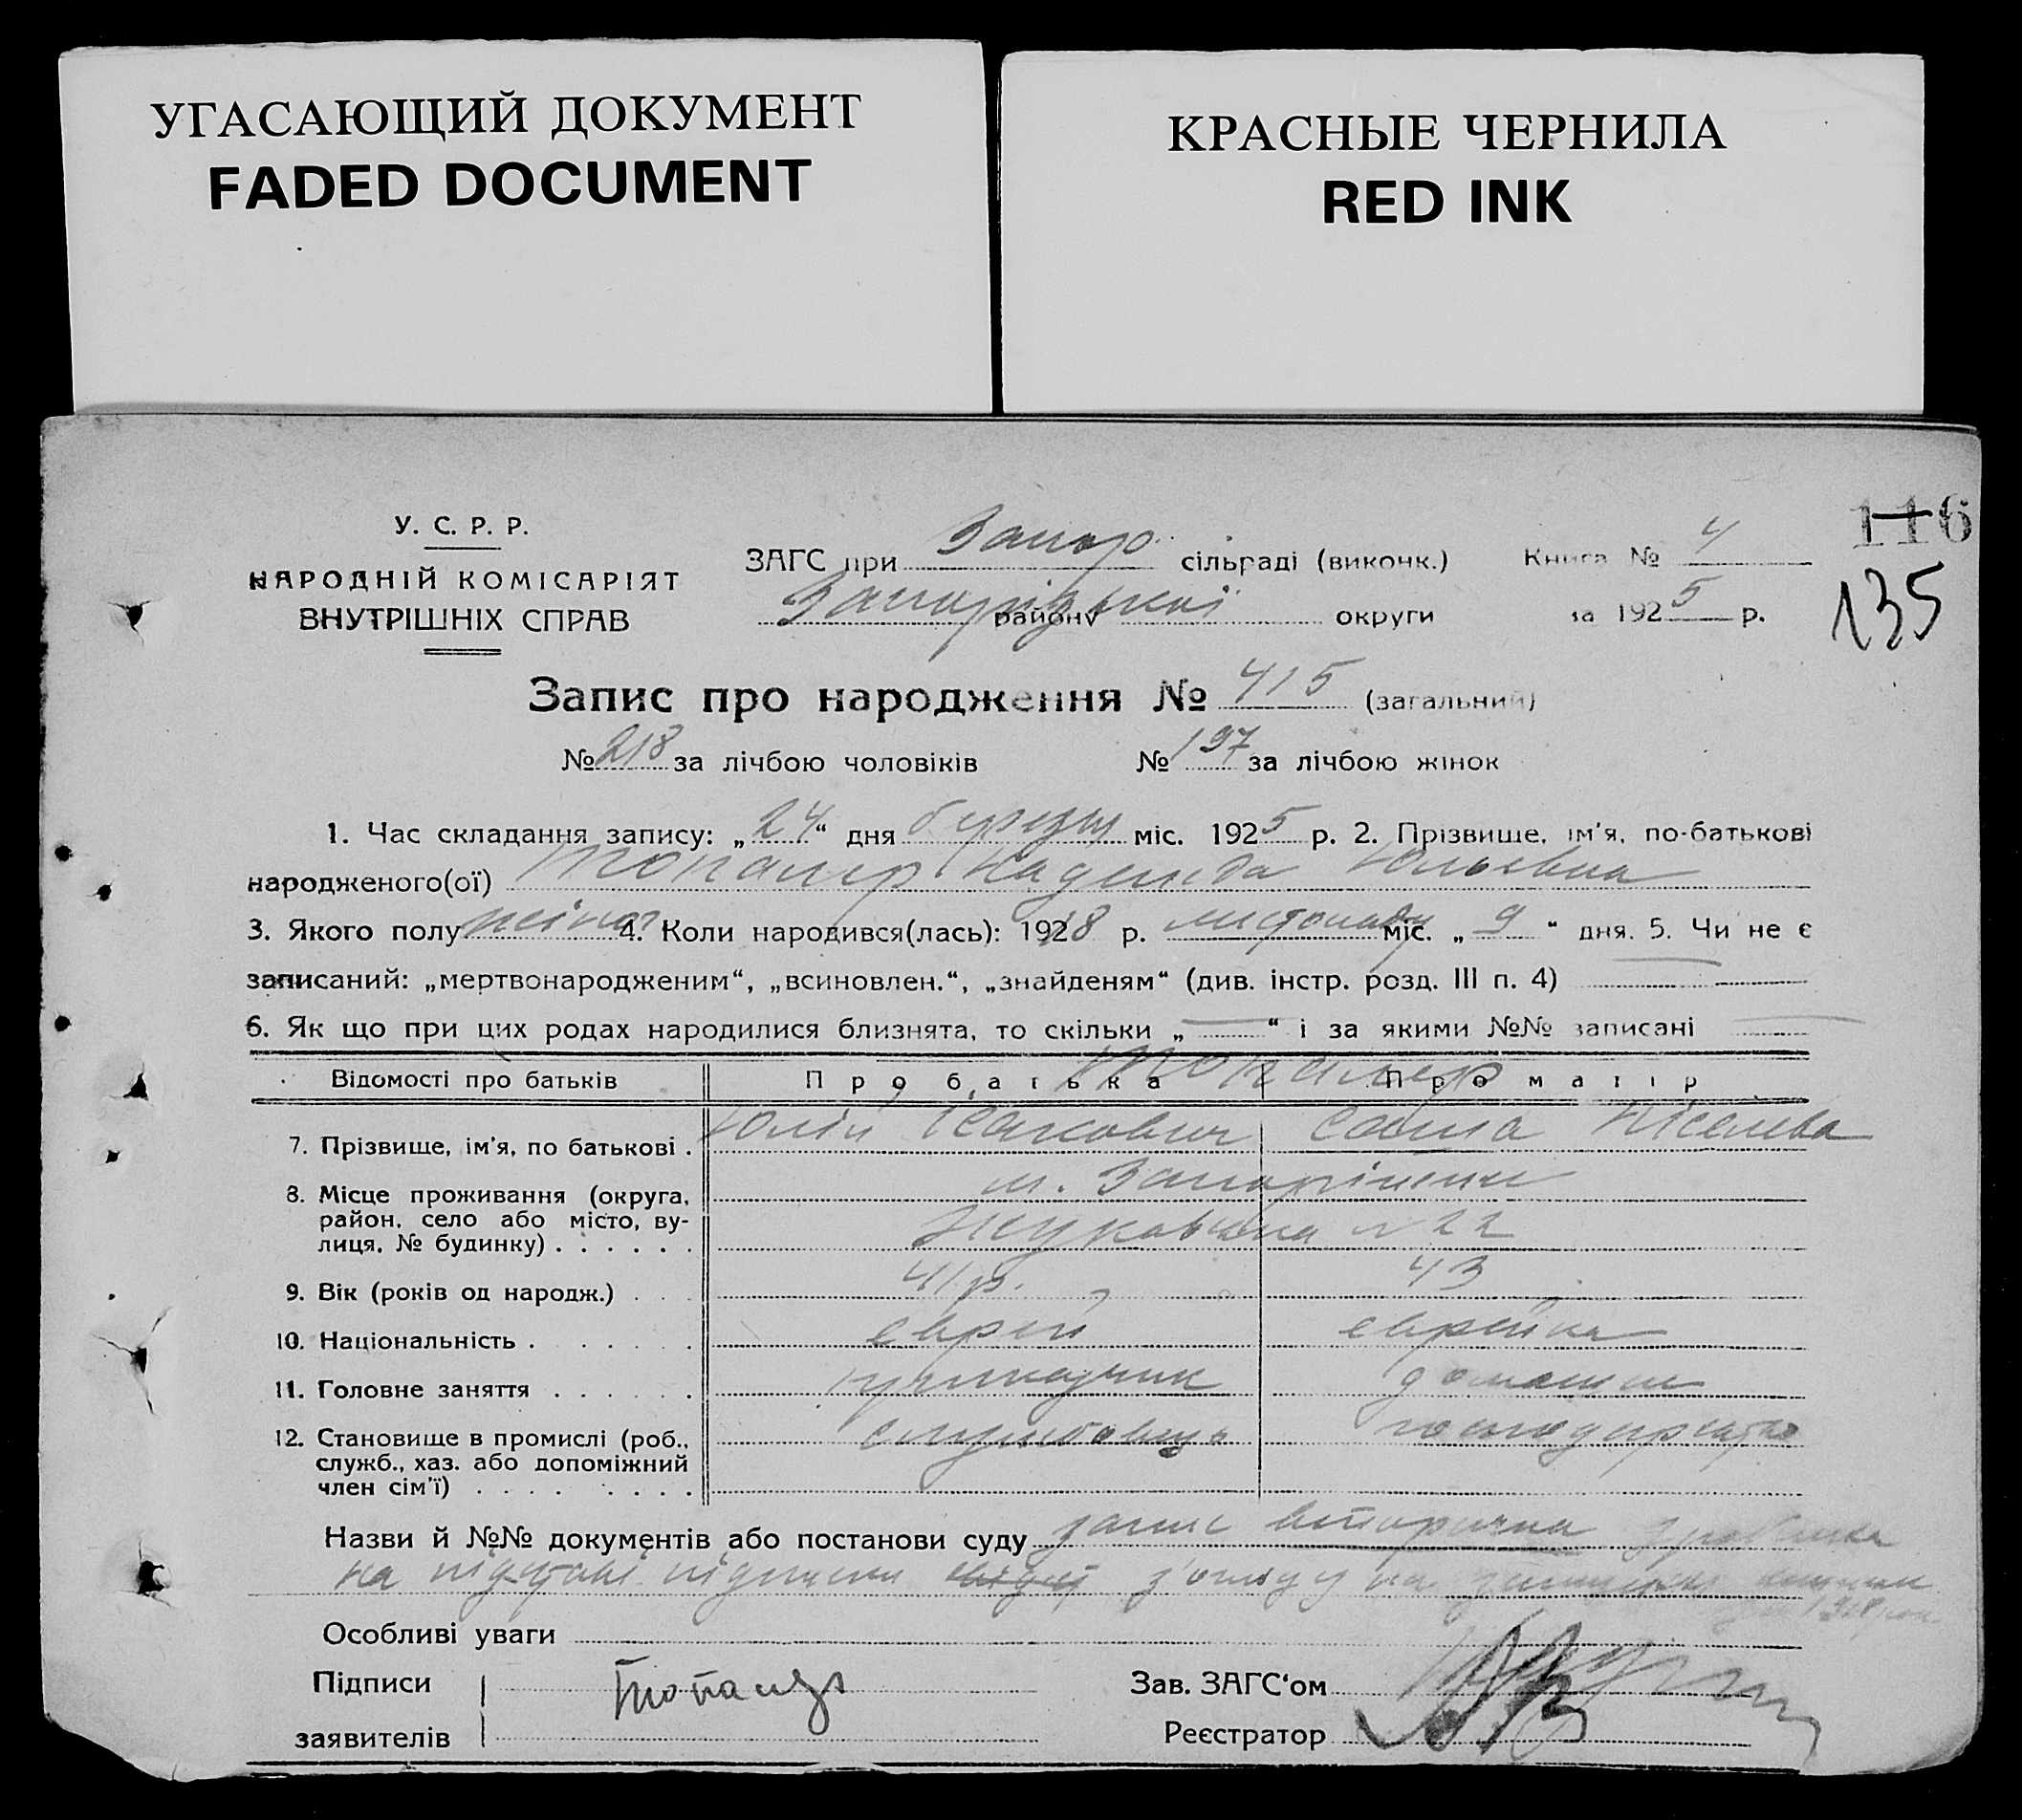 УГАСАЮЩИЙ ДОКУМЕНТ
FADED DOCUMENT
КРАСНЫЕ ЧЕРНИЛА
RED INK
116
135
У. С. Р. Р.
НАРОДНІЙ КОМІСАРІЯТ
ВНУТРІШНІХ СПРАВ
ЗАГС при Запор. сільраді (виконк.) Книга № 4
Запорізької району округи за 1925 р.
Запис про народження № 415 (загальний)
№ 218 за лічбою чоловіків № 197 за лічбою жінок
1. Час складання запису: „24“ дня березня міс. 1925 р. 2. Прізвище, ім'я, по-батькові
народженого(ої) Топалер Надежда Юльевна
3. Якого полу жіноч 4. Коли народився(лась): 1918 р. листопаду міс. „9“ дня. 5. Чи не є
записаний: „мертвонародженим“, „всиновлен.“, „знайденям“ (див. інстр. розд. III п. 4)
6. Як що при цих родах народилися близнята, то скільки „ “ і за якими №№ записані
Відомості про батьків Про батька Про матір
Топалер
7. Прізвище, ім'я, по батькові . Юлій Ісакович
8. Місце проживання (округа, район, село або місто, вулиця, № будинку) . . . . . . м. Запоріжжя
№ 22
9. Вік (років од народж.) . . . 41 р. 43
10. Національність . . . . . . єврей єврейка
11. Головне заняття . . . . . . домашнє
12. Становище в промислі (роб., служб., хаз. або допоміжний член сім'ї) . . . . . . . . службовець господарство
Назви й №№ документів або постанови суду запис
на підставі підписки
Особливі уваги
Підписи заявителів Топалер
Зав. ЗАГС‘ом
Реєстратор